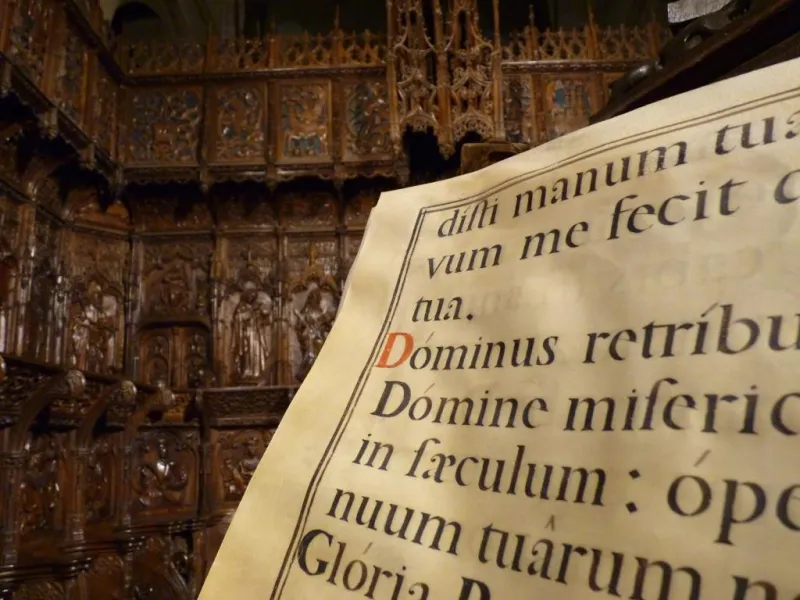 diſti manum tua
vum me fecit
tua.
Dóminus retríbu
Dómine miſeric
in ſæculum : ópe
nuum tuârum n
Glória P